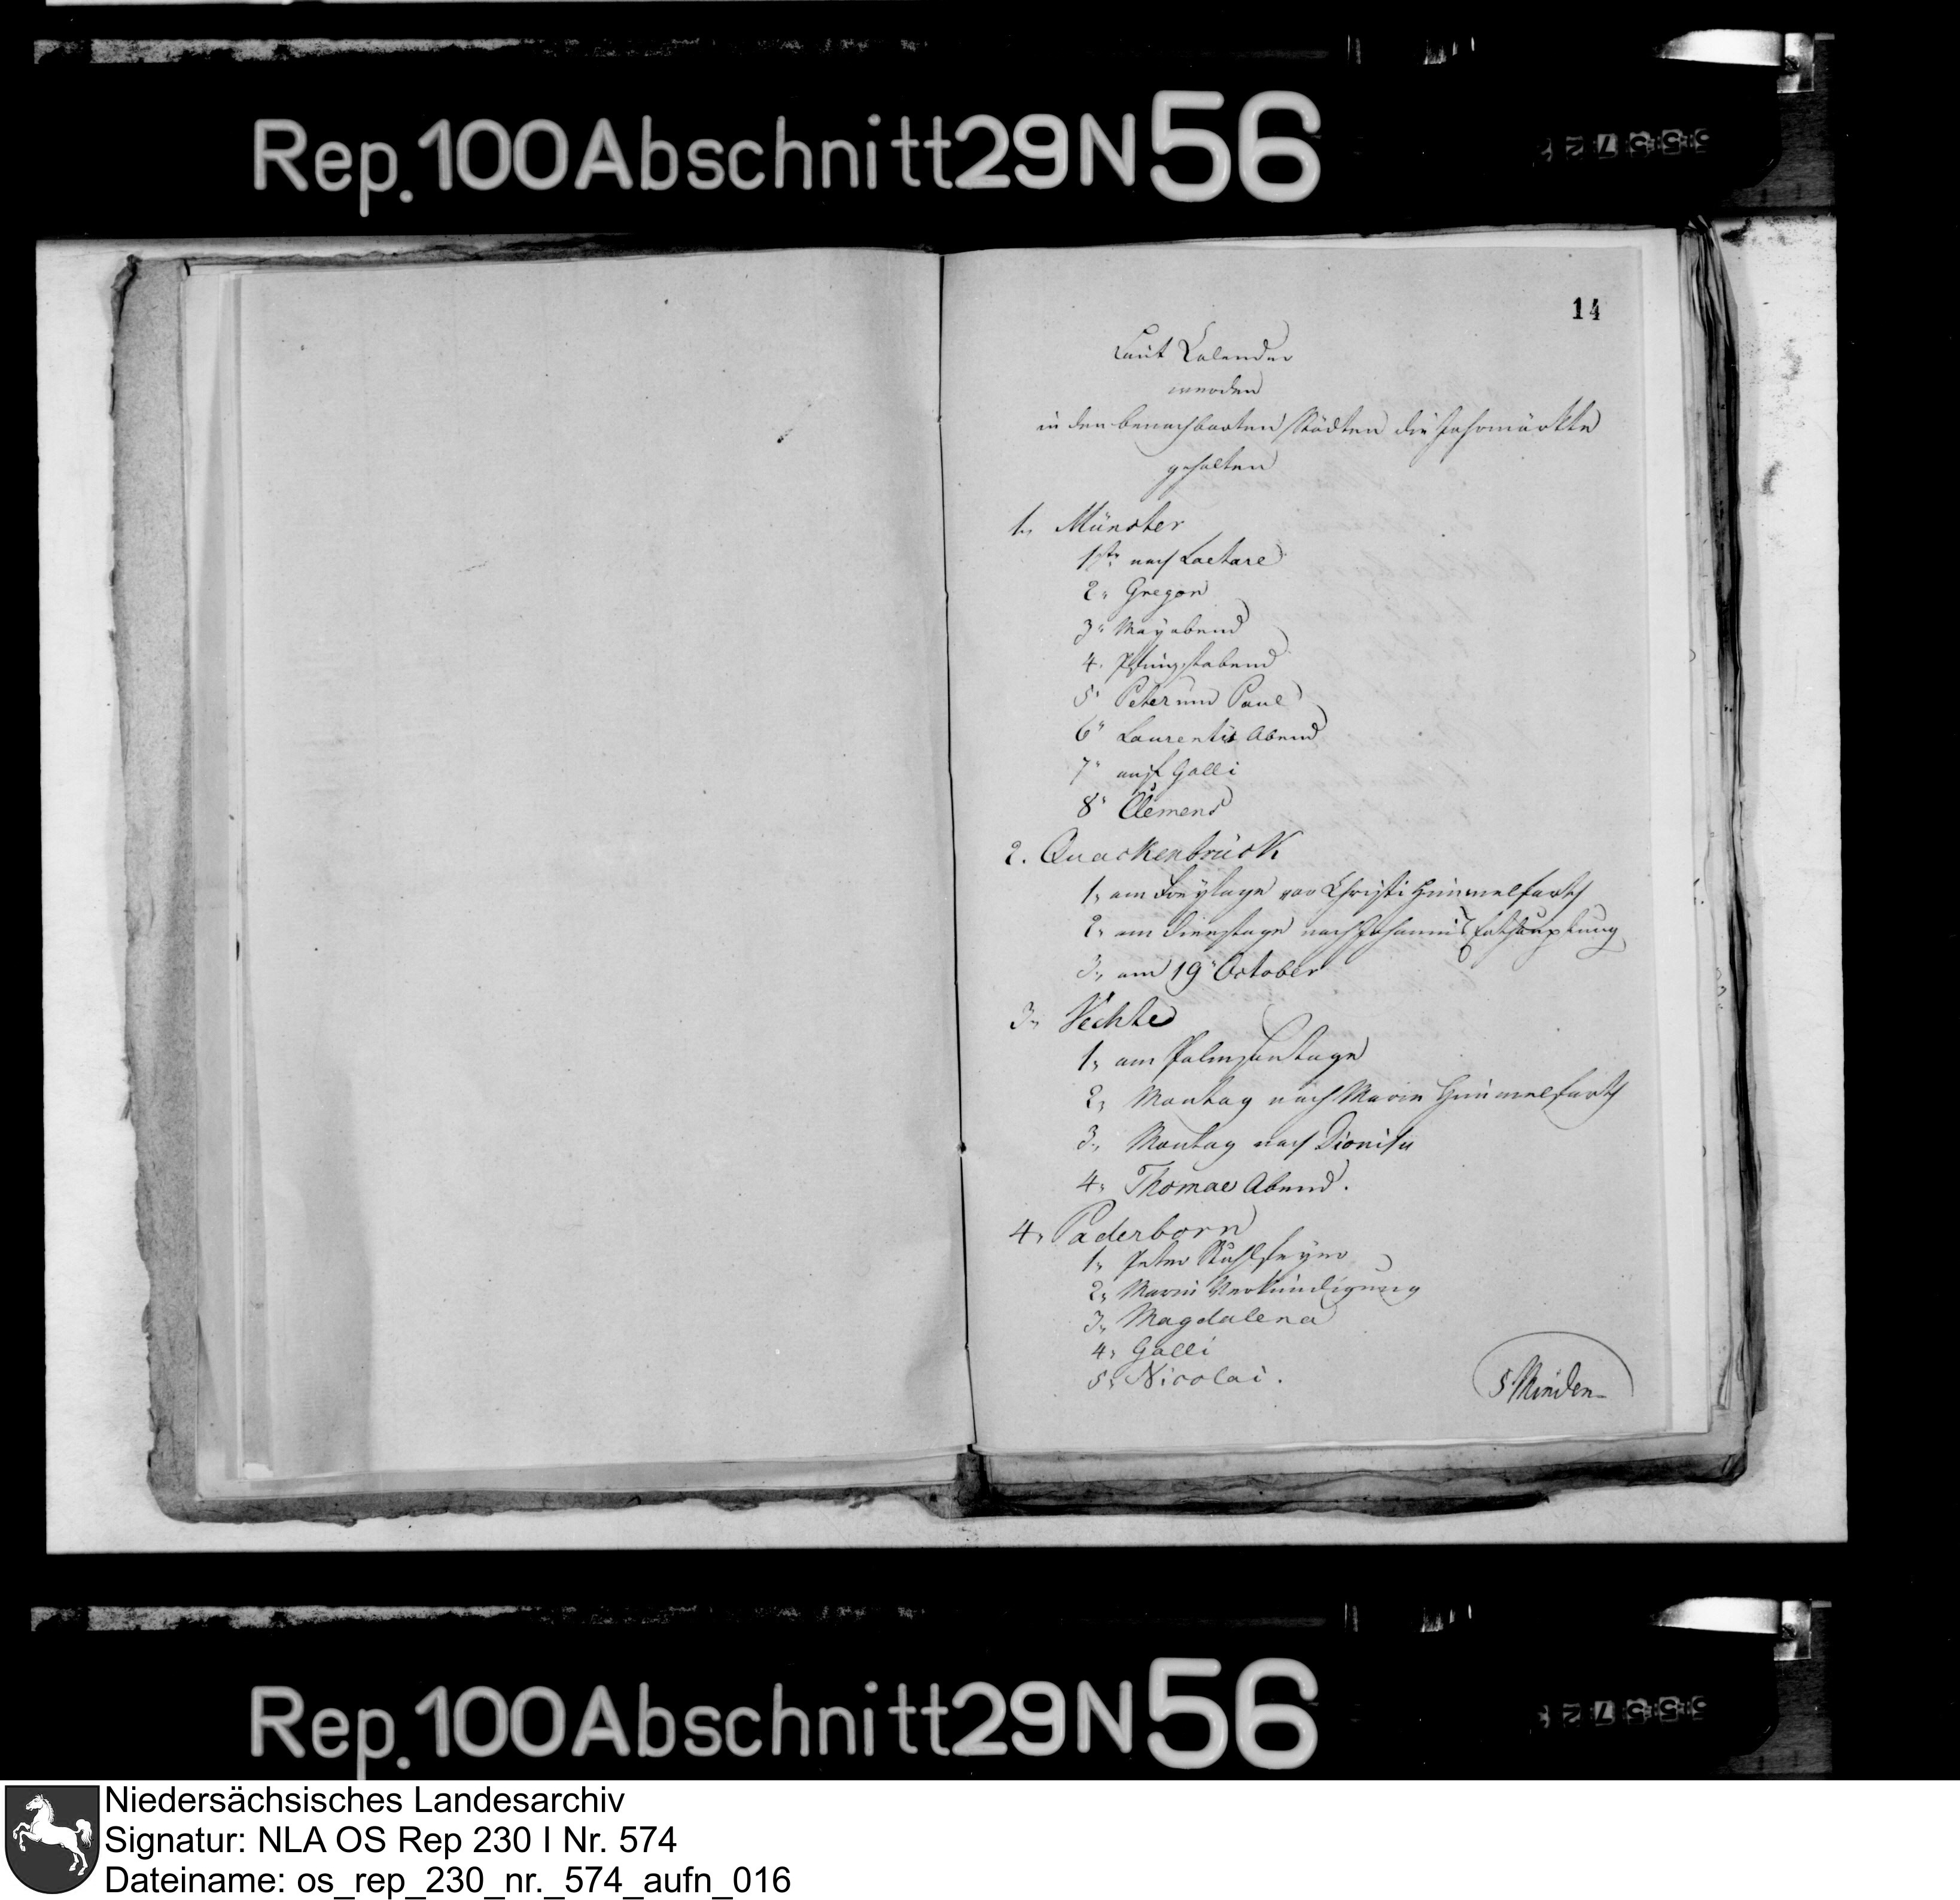 Rep. 100 Abschnitt 29 N 56
14
Laut Calender
werden
in den benachbarten Städten die Jahrmärkte
gehalten
1., Münster
1ste nach Laetare
2" Gregor
3" Mayabend
4. Pfingstabend
5" Peter und Paul
6" Laurentii Abend
7" auf Galli
8" Clemens
2. Quackenbrück
1, am Freytage vor Christi Himmelfarth
2, am Dienstage nach Johannis Enthauptung
3., am 19" October
3., Vechte
1, am Palmsontage
2, Montag nach Marie Himmelfarth
3., Montag nach Dionisii
4, Thomae Abend.
4, Paderborn
1, Peter Stuhlfeyer
2, Mariä Verkündigung
3, Magdalena
4, Galli
5, Nicolai.
5. Minden
Rep. 100 Abschnitt 29 N 56
Niedersächsisches Landesarchiv
Signatur: NLA OS Rep 230 I Nr. 574
Dateiname: os_rep_230_nr._574_aufn_016